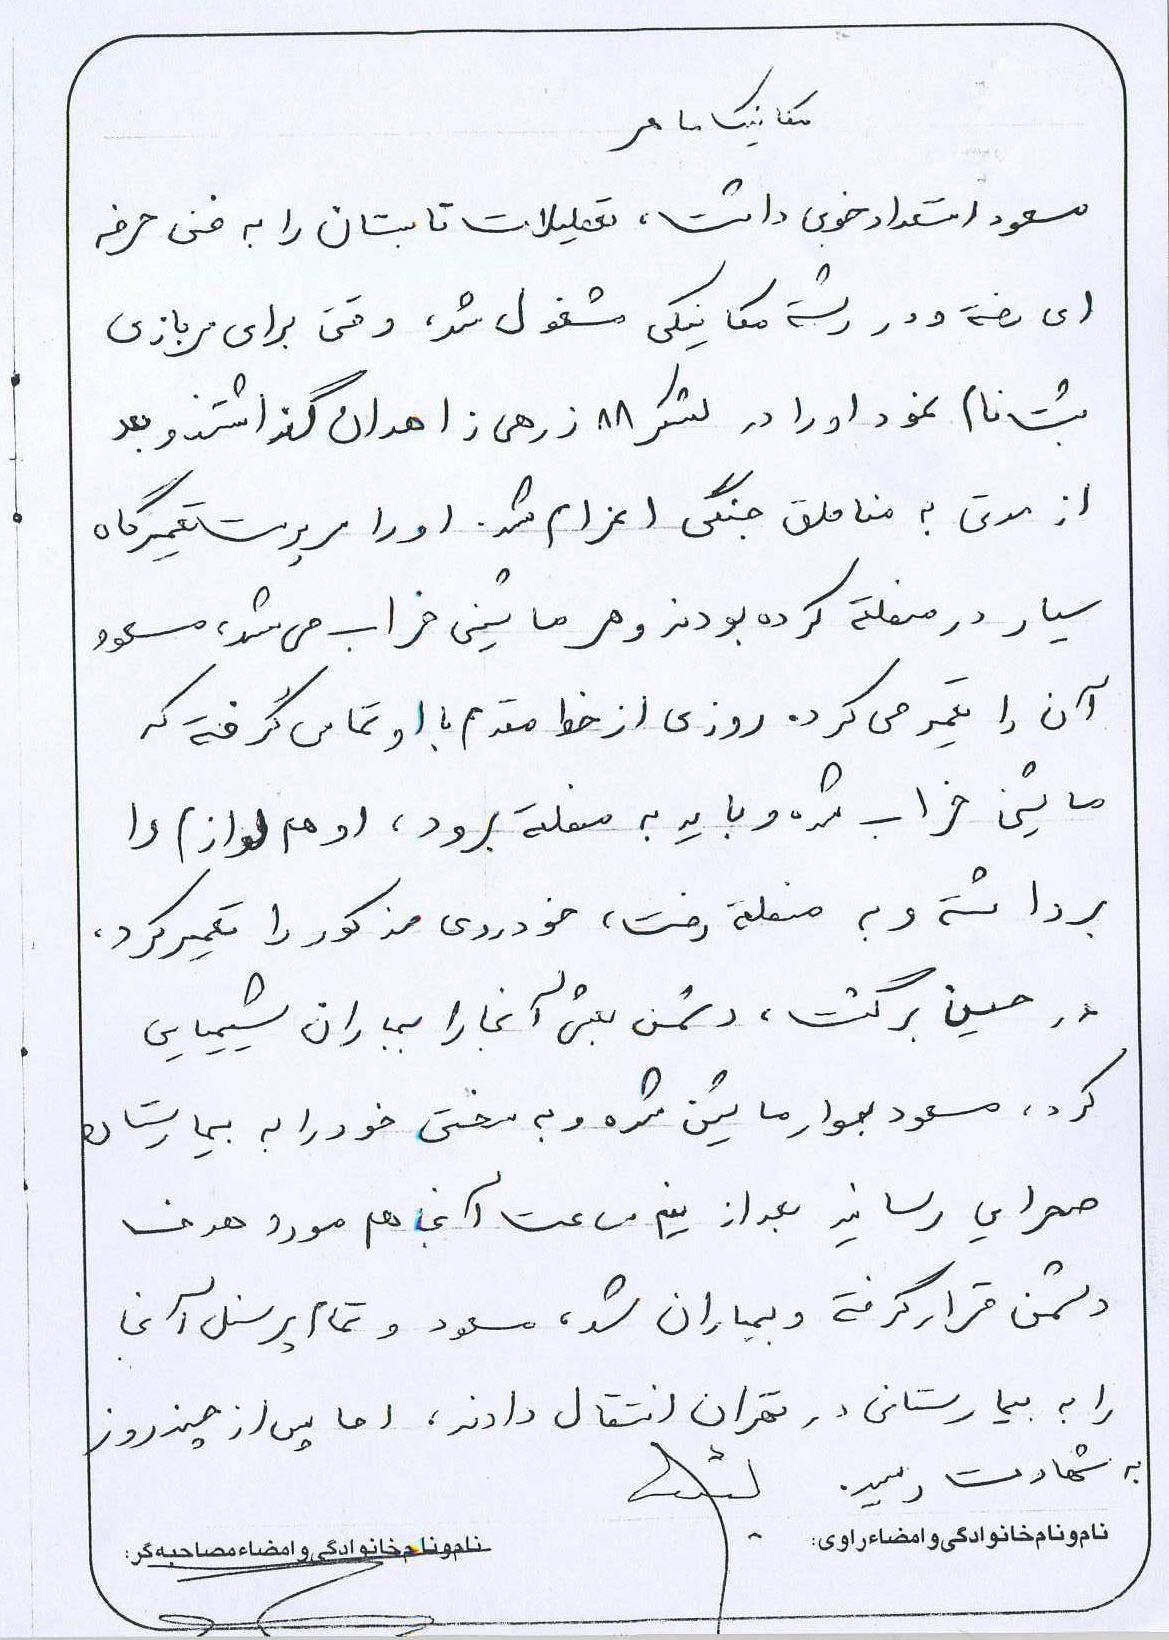 مکانیک ماهر
مسعود استعداد خوبی داشت، تعطیلات تابستان را به فنی حرفه
ای رفته و در رشته مکانیکی مشغول شد، وقتی برای سربازی
ثبت نام نمود او را در لشکر ۸۸ زرهی زاهدان گذاشتند و بعد
از مدتی به مناطق جنگی اعزام شد. او را سرپرست تعمیرگاه
سیار در منطقه کرده بودند و هر ماشینی خراب می شد، مسعود
آن را تعمیر می کرد. روزی از خط مقدم با او تماس گرفته که
ماشین خراب شده و باید به منطقه برود، او هم لوازم را
برداشته و به منطقه رفت، خودروی مذکور را تعمیر کرد،
در حین برگشت، دشمن بعثی آنجا را بمباران شیمیایی
کرد، مسعود سوار ماشین شده و به سختی خود را به بیمارستان
صحرایی رسانید بعد از نیم ساعت آنجا هم مورد هدف
دشمن قرار گرفته و بمباران شد، مسعود و تمام پرسنل آنجا
را به بیمارستانی در تهران انتقال دادند، اما پس از چند روز
به شهادت رسید.
نام و نام خانوادگی و امضاء راوی:
نام و نام خانوادگی و امضاء مصاحبه گر: